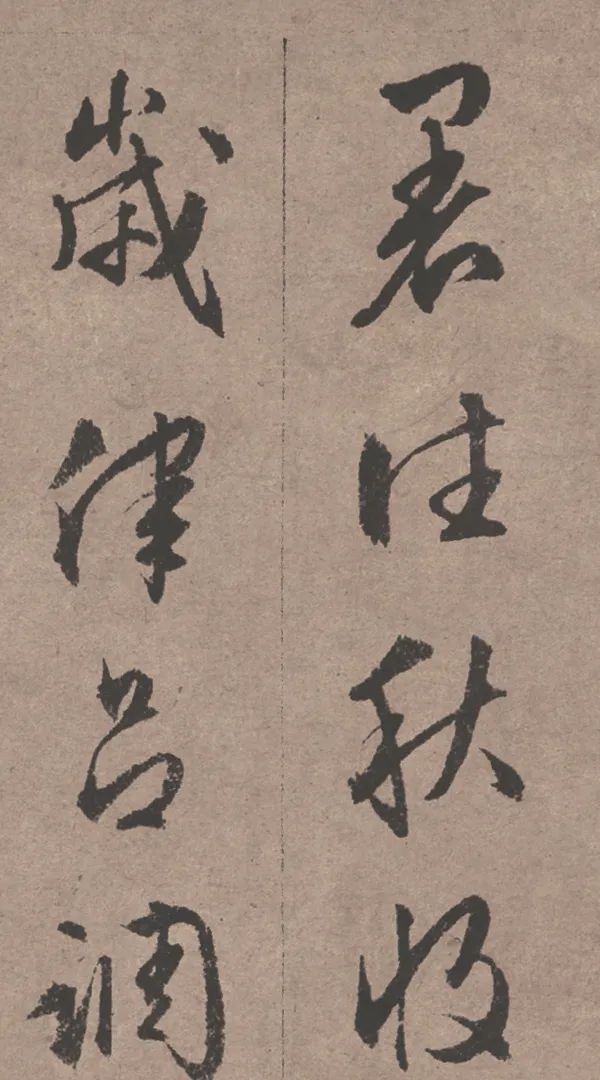 暑往秋收
歲律呂調